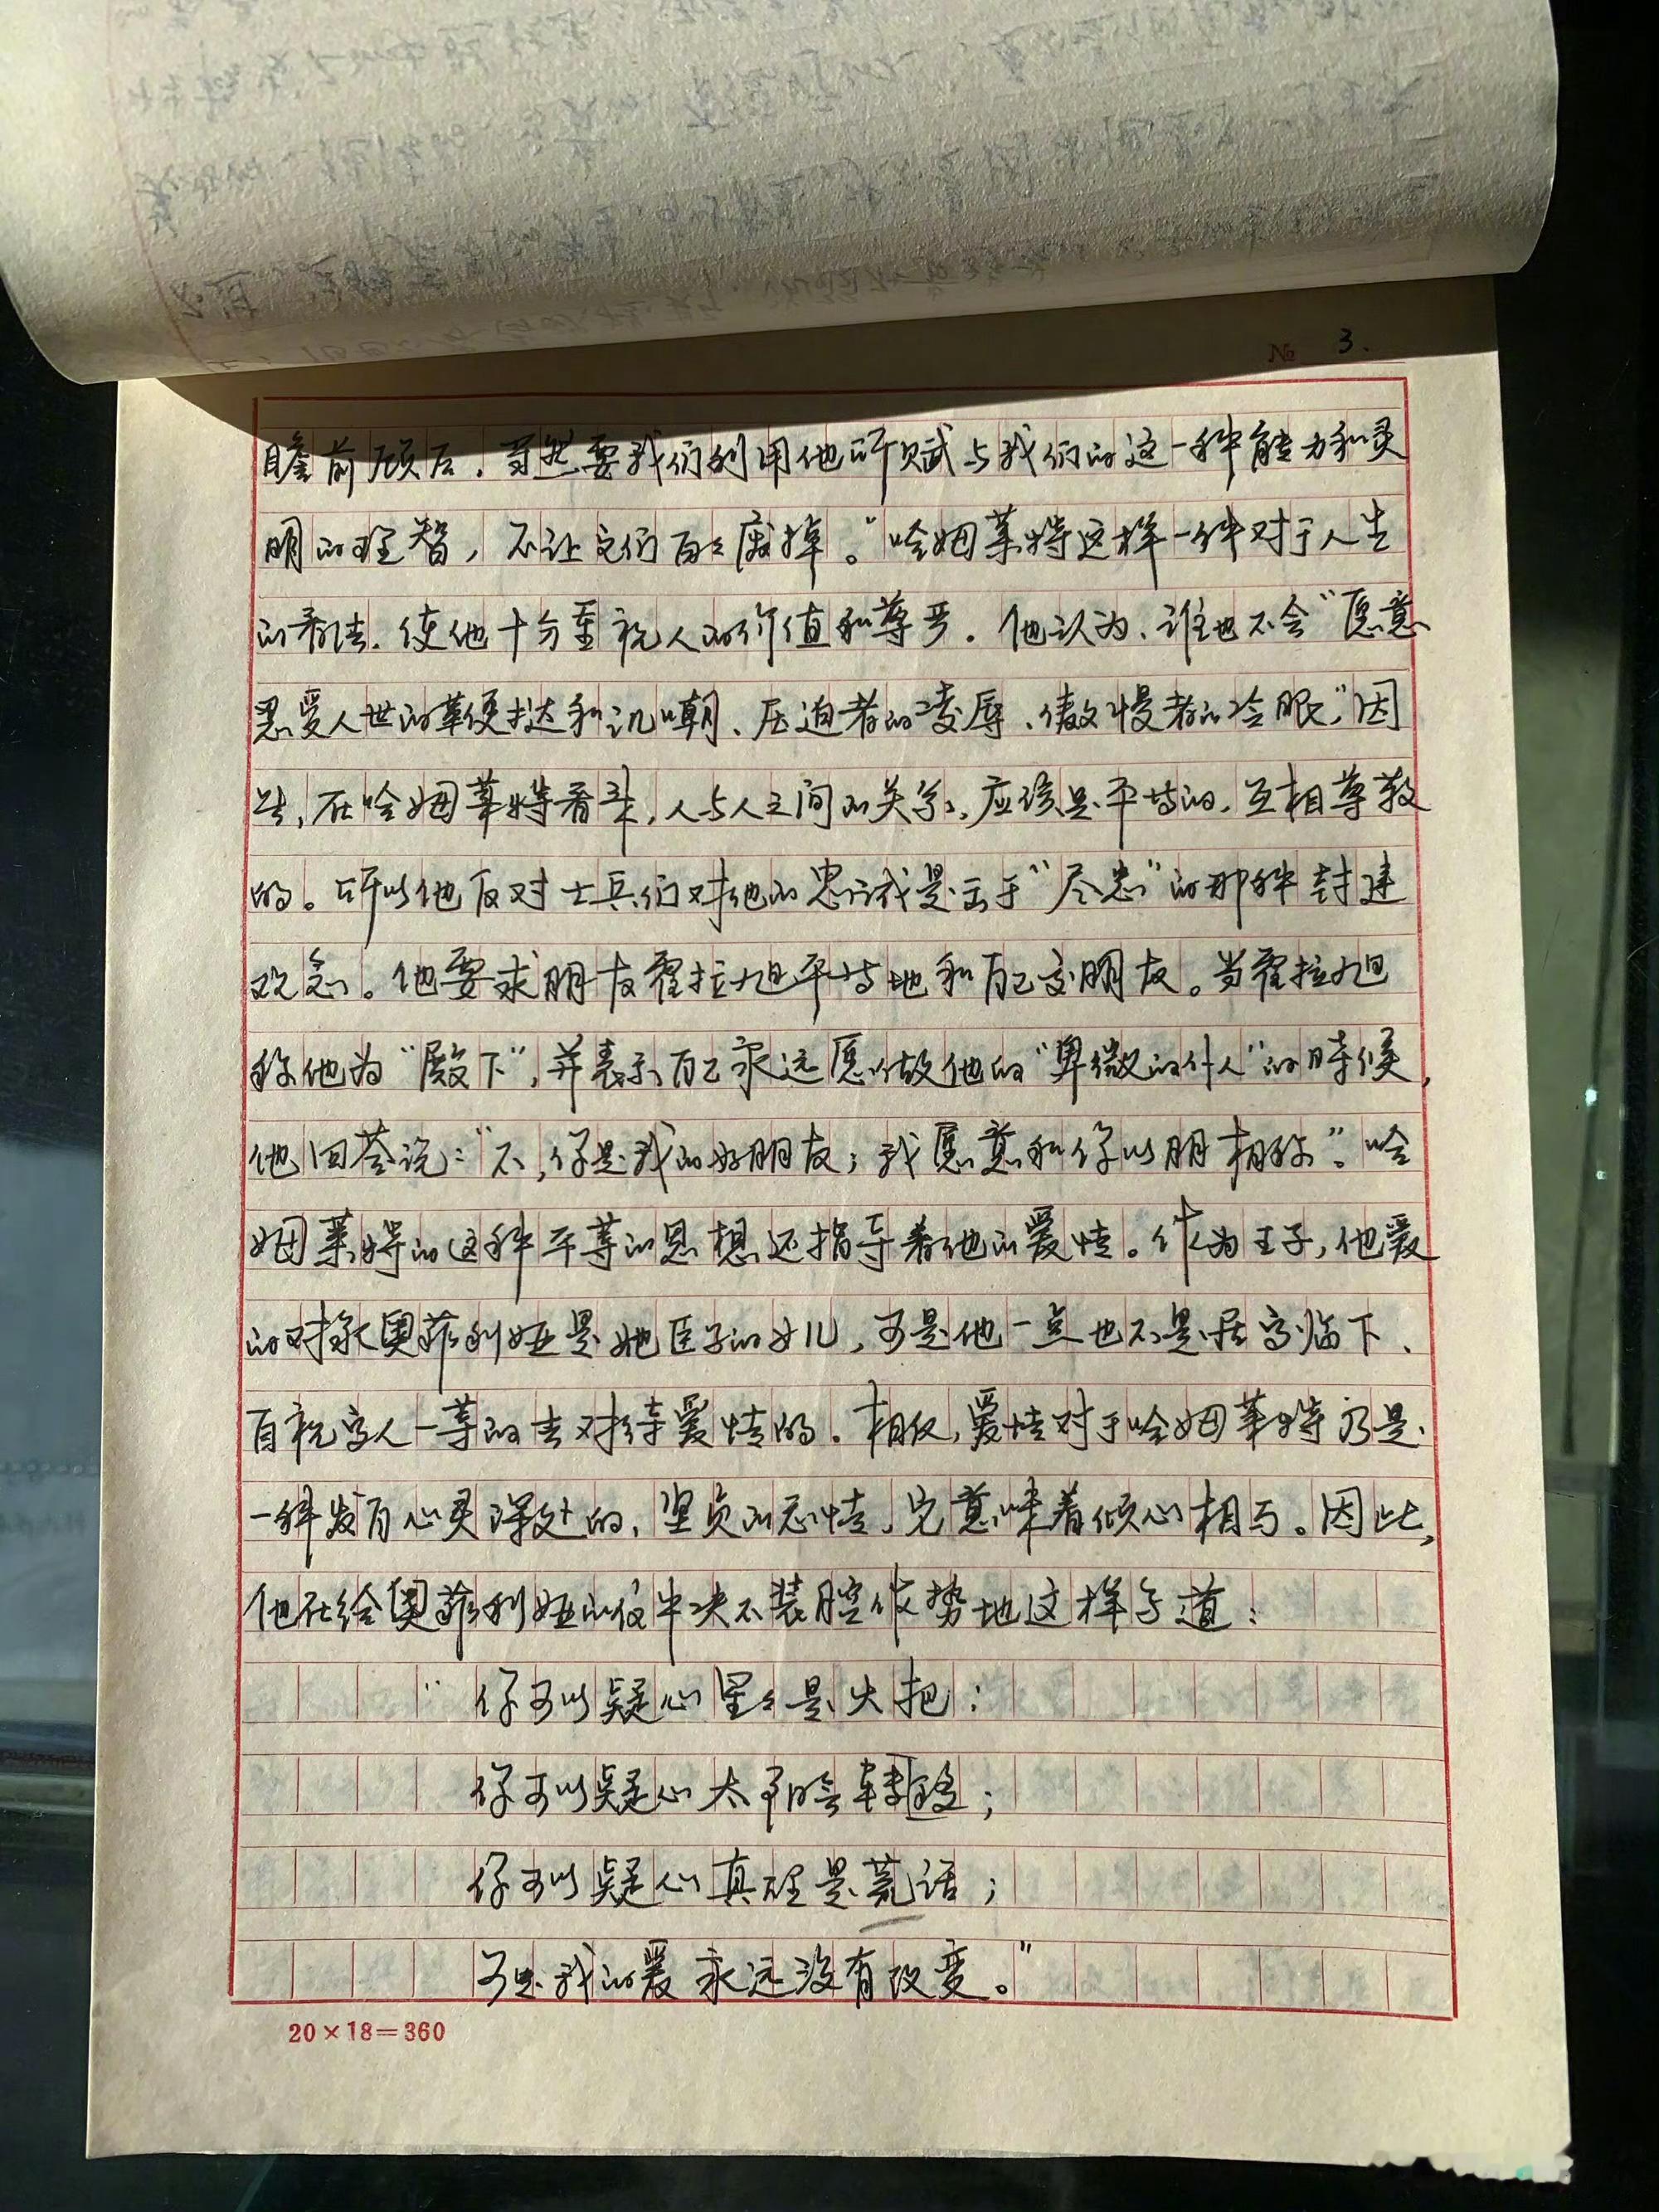 № 3.
瞻前顾后，当然要我们利用他所赋与我们的这一种能力和灵
明的理智，不让它们白白废掉。”哈姆莱特这样一种对于人生
的看法，使他十分重视人的价值和尊严。他认为，谁也不会“愿意
忍受人世的鞭挞和讥嘲、压迫者的凌辱、傲慢者的冷眼”，因
此，在哈姆莱特看来，人与人之间的关系，应该是平等的，互相尊敬
的。所以他反对士兵们对他的忠诚是出于“尽忠”的那种封建
观念。他要求朋友霍拉旭平等地和自己交朋友。当霍拉旭
称他为“殿下”，并表示自己永远愿做他的“卑微的仆人”的时候，
他回答说：“不，你是我的好朋友；我愿意和你以朋相称”。哈
姆莱特的这种平等的思想还指导着他的爱情。作为王子，他爱
的对象奥菲利娅是她臣子的女儿，可是他一点也不是居高临下、
自视高人一等的去对待爱情的。相反，爱情对于哈姆莱特乃是
一种发自心灵深处的，坚贞的恋情，它意味着倾心相与。因此，
他在给奥菲利娅的信中决不装腔作势地这样写道：
“你可以疑心星々是火把；
你可以疑心太阳会转移；
你可以疑心真理是荒话；
可是我的爱永远没有改变。”
20×18＝360